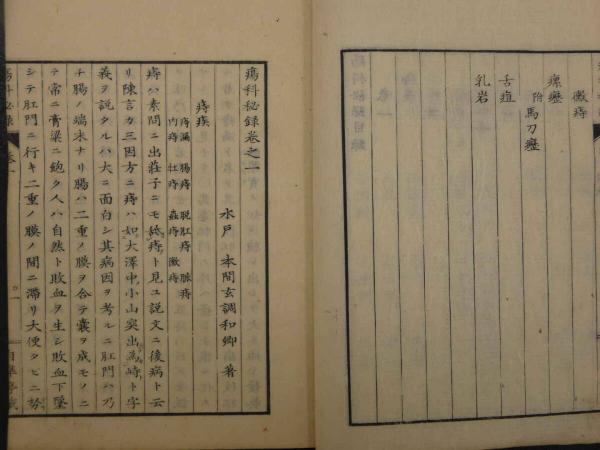 黴痔
瘰癧
附馬刀癧
舌疽
乳岩
瘍科秘録巻之一
水戸 本間玄調和卿 著
痔疾
痔漏 腸痔 脱肛痔 脈痔
内痔 牡痔 蟲痔 黴痔
痔ハ素問ニ出荘子ニモ舐痔ト見ユ説文ニ後病ト云
リ陳言カ三因方ニ痔ハ如大澤中小山突出為峙ト字
義ヲ説タルハ大ニ面白シ其病因ヲ考ルニ肛門ハ乃
チ腸ノ端末ナリ腸ハ二重ノ膜ヲ合テ嚢ヲ成モノニ
テ常ニ膏粱ニ飽タ人ハ自然ト敗血ヲ生シ敗血下墜
シテ肛門ニ行キ二重ノ膜ノ間ニ滞リ大便タビニ努
瘍科秘録
巻一
一